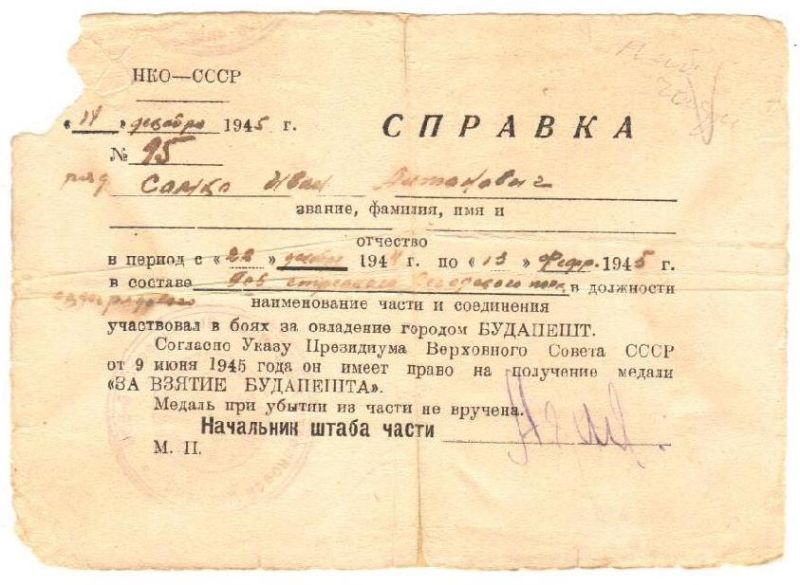 НКО—СССР
« 14 » декабря 1945 г.
СПРАВКА
№ 95
ряд Самко Иван Антонович
звание, фамилия, имя и
отчество
в период с « 22 » декабр 1944 г. по « 13 » Февр. 1945 г.
в составе стрелкового полк в должности
наименование части и соединения
участвовал в боях за овладение городом БУДАПЕШТ.
Согласно Указу Президиума Верховного Совета СССР
от 9 июня 1945 года он имеет право на получение медали
«ЗА ВЗЯТИЕ БУДАПЕШТА».
Медаль при убытии из части не вручена.
Начальник штаба части
М. П.